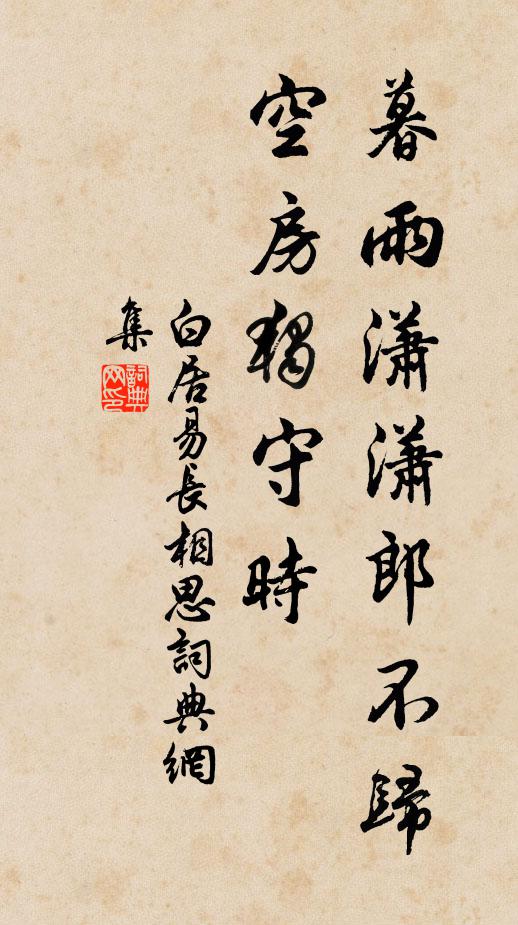 暮雨瀟瀟郎不歸
空房獨守時
白居易長相思詞典網
集
詞典網印